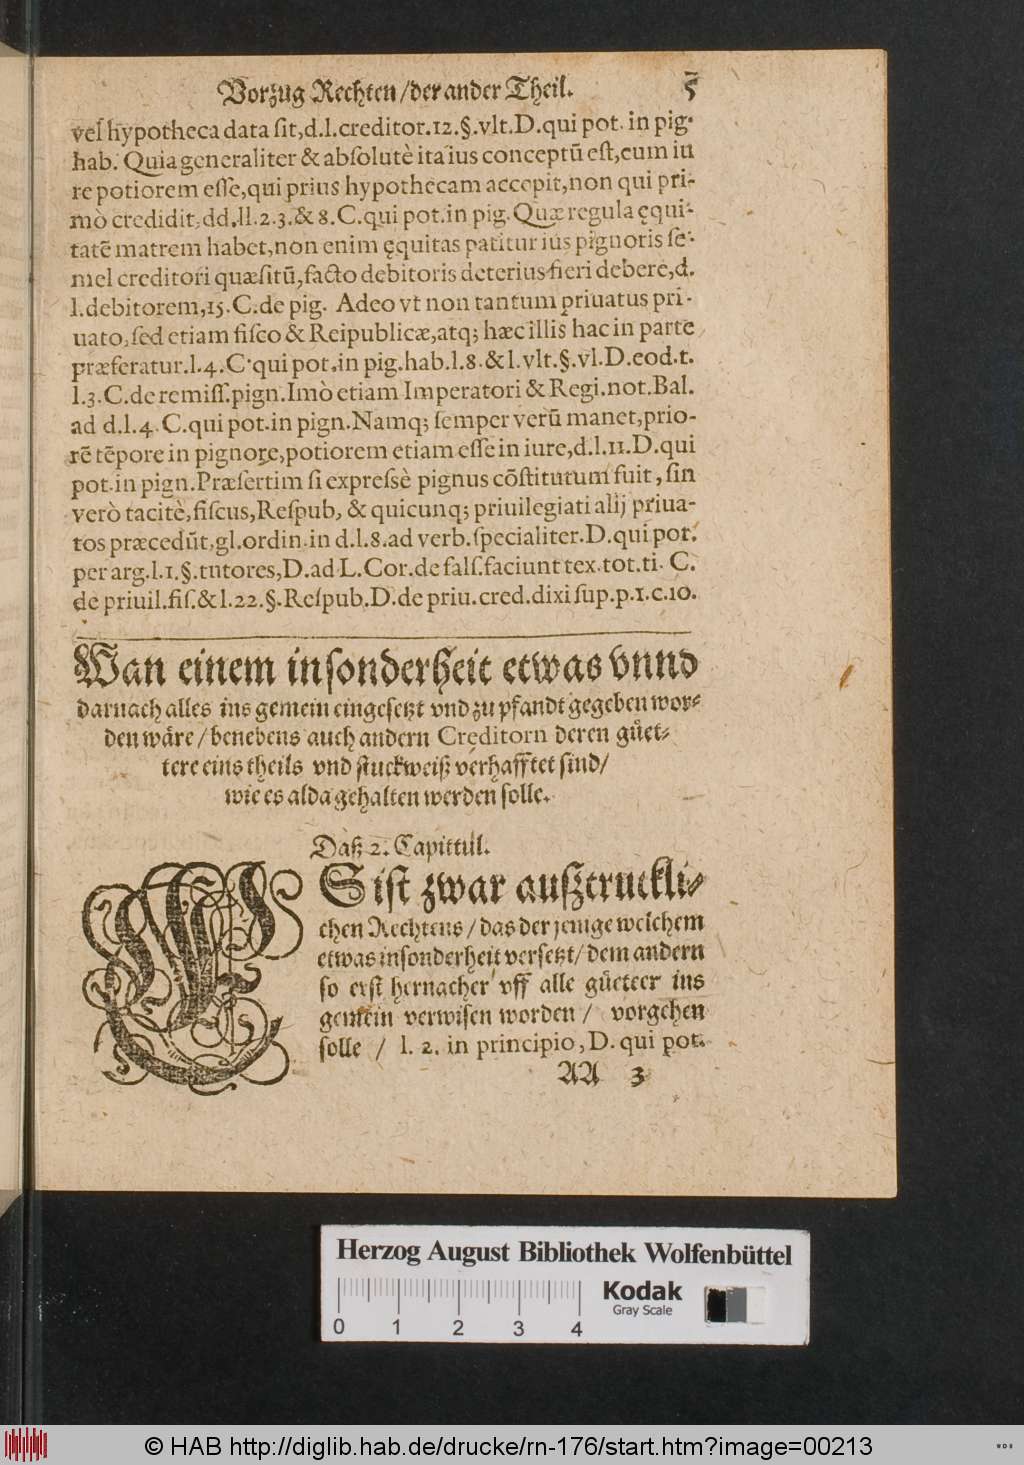 Vorzug Rechten / der ander Theil. 5
vel hypotheca data ſit, d.l. creditor. 12. §. vlt. D. qui pot. in pig.
hab. Quia generaliter & abſolutè ita ius conceptũ eſt, eum iu
re potiorem eſſe, qui prius hypothecam accepit, non qui pri-
mò credidit, dd. ll. 2. 3. & 8. C. qui pot. in pig. Quæ regula ęqui-
tatẽ matrem habet, non enim ęquitas patitur ius pignoris ſe-
mel creditori quæſitũ, facto debitoris deterius fieri debere, d.
l. debitorem, 15. C. de pig. Adeo vt non tantum priuatus pri-
uato, ſed etiam fiſco & Reipublicæ, atq; hæc illis hac in parte
præferatur. l. 4. C. qui pot. in pig. hab. l. 8. & l. vlt. §. vl. D. eod. t.
l. 3. C. de remiſſ. pign. Imò etiam Imperatori & Regi. not. Bal.
ad d. l. 4. C. qui pot. in pign. Namq; ſemper verũ manet, prio-
rẽ tẽpore in pignore, potiorem etiam eſſe in iure, d. l. 11. D. qui
pot. in pign. Præſertim ſi expreſsè pignus cõſtitutum fuit, ſin
verò tacitè, fiſcus, Reſpub, & quicunq; priuilegiati alij priua-
tos præcedũt, gl. ordin. in d. l. 8. ad verb. ſpecialiter. D. qui pot.
per arg. l. 1. §. tutores, D. ad L. Cor. de falſ. faciunt tex. tot. ti. C.
de priuil. fiſ. & l. 22. §. Reſpub. D. de priu. cred. dixi ſup. p. 1. c. 10.
Wan einem inſonderheit etwas vnnd
darnach alles ins gemein eingeſetzt vnd zu pfandt gegeben wor-
den wåre / benebens auch andern Creditorn deren gůet-
tere eins theils vnd ſtuckweiß verhafftet ſind /
wie es alda gehalten werden ſolle.
Daß 2. Capittul.
ES iſt zwar außtruckli-
chen Rechtens / das der jenige welchem
etwas inſonderheit verſetzt / dem andern
ſo erſt hernacher vff alle gůeteer ins
gemein verwiſen worden / vorgehen
ſolle / l. 2. in principio, D. qui pot.
AA 3
Herzog August Bibliothek Wolfenbüttel
Kodak
Gray Scale
0 1 2 3 4
© HAB http://diglib.hab.de/drucke/rn-176/start.htm?image=00213